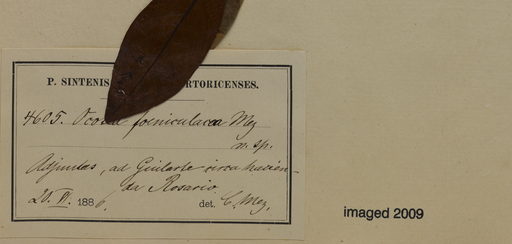 P. SINTENIS TORICENSES.
4605. Ocotea foeniculacea Mez
n. sp.
Adjuntas, ad Guilarte circa hacien-
da Rosario
20. VI. 1886. det. C. Mez.
imaged 2009